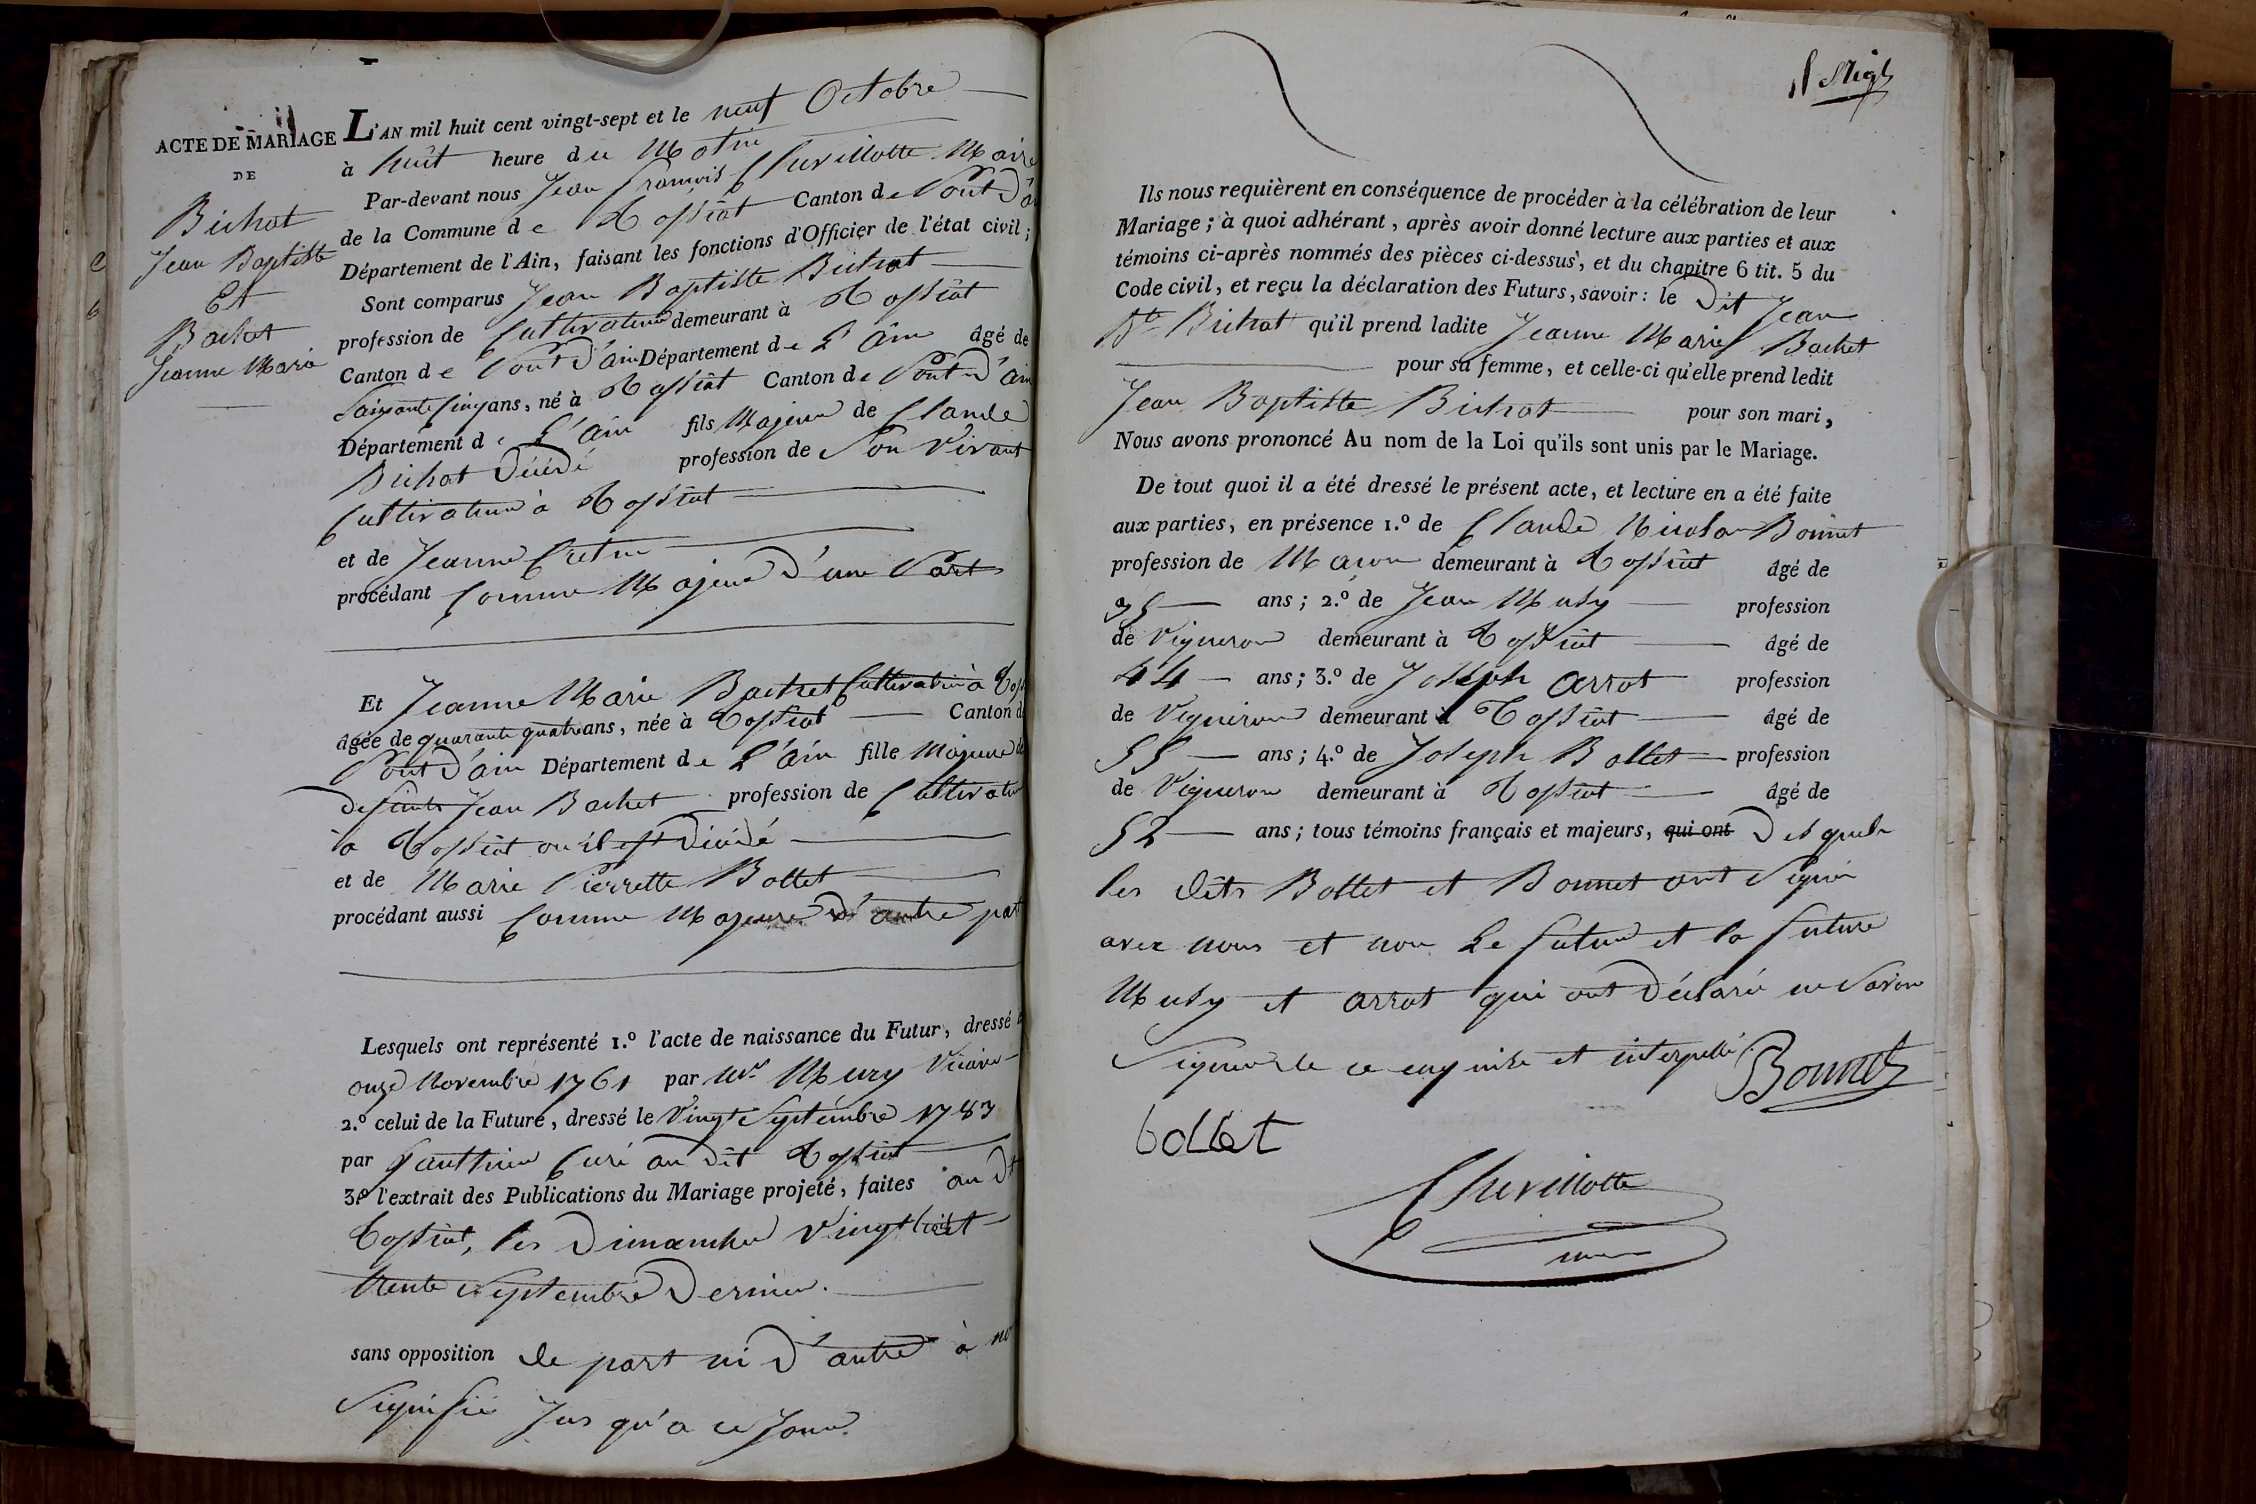 ACTE DE MARIAGE
DE
Bichat
Jean Baptiste
Et
Bachet
Jeanne Marie
L'AN mil huit cent vingt-sept et le neuf Octobre
à huit heure du Matin
Par-devant nous Jean François Chevillotte Maire
de la Commune de Tossiat Canton de Pont d'ai
Département de l'Ain, faisant les fonctions d'Officier de l'état civil;
Sont comparus Jean Baptiste Bichat
profession de Cultivateur demeurant à Tossiat
Canton de Pont d'ain Département de L'Ain âgé de
Soixante cinq ans, né à Tossiat Canton de Pont d'ain
Département de L'ain fils Majeur de Claude
Bichat Décédé profession de Son Vivant
Cultivateur à Tossiat
et de Jeanne
procédant Comme Majeur d'une Part
Et Jeanne Marie Bachet Cultivatrice à Toss
âgée de quarante quatre ans, née à Tossiat Canton d
Pont d'ain Département de L'ain fille Majeure de
défunts Jean Bachet profession de Cultivateur
à Tossiat où il est Décédé
et de Marie Pierrette Bollet
procédant aussi Comme Majeure d'autre part
Lesquels ont représenté 1.º l'acte de naissance du Futur, dressé l
onze Novembre 1761 par Mr. Mury Vicaire
2.º celui de la Future, dressé le Vingt Septembre 1783
par Gauthier Curé au dit Tossiat
3.º l'extrait des Publications du Mariage projeté, faites au dt
Tossiat, les Dimanches Vingt trois et
trente Septembre Dernier.
sans opposition de part ni d'autre à no
Signifié Jusqu'a ce Jour.
Ils nous requièrent en conséquence de procéder à la célébration de leur
Mariage; à quoi adhérant, après avoir donné lecture aux parties et aux
témoins ci-après nommés des pièces ci-dessus, et du chapitre 6 tit. 5 du
Code civil, et reçu la déclaration des Futurs, savoir: le Dit Jean
Bte Bichat qu'il prend ladite Jeanne Marie Bachet
pour sa femme, et celle-ci qu'elle prend ledit
Jean Baptiste Bichat pour son mari,
Nous avons prononcé Au nom de la Loi qu'ils sont unis par le Mariage.
De tout quoi il a été dressé le présent acte, et lecture en a été faite
aux parties, en présence 1.º de Claude Nicolas Bonnet
profession de Maçon demeurant à Tossiat âgé de
ans; 2.º de Jean Musy profession
de Vigneron demeurant à Tossiat âgé de
44 ans; 3.º de Joseph Arrot profession
de Vigneron demeurant à Tossiat âgé de
55 ans; 4.º de Joseph Bollet profession
de Vigneron demeurant à Tossiat âgé de
52 ans; tous témoins français et majeurs, qui ont Desquels
les dits Bollet et Bonnet ont Signé
avec nous et non Le futur et la future
Musy et Arrot qui ont Déclaré ne Savoir
Signer de ce enquise et interpellé.
Bonnet
bollet
Chevillotte